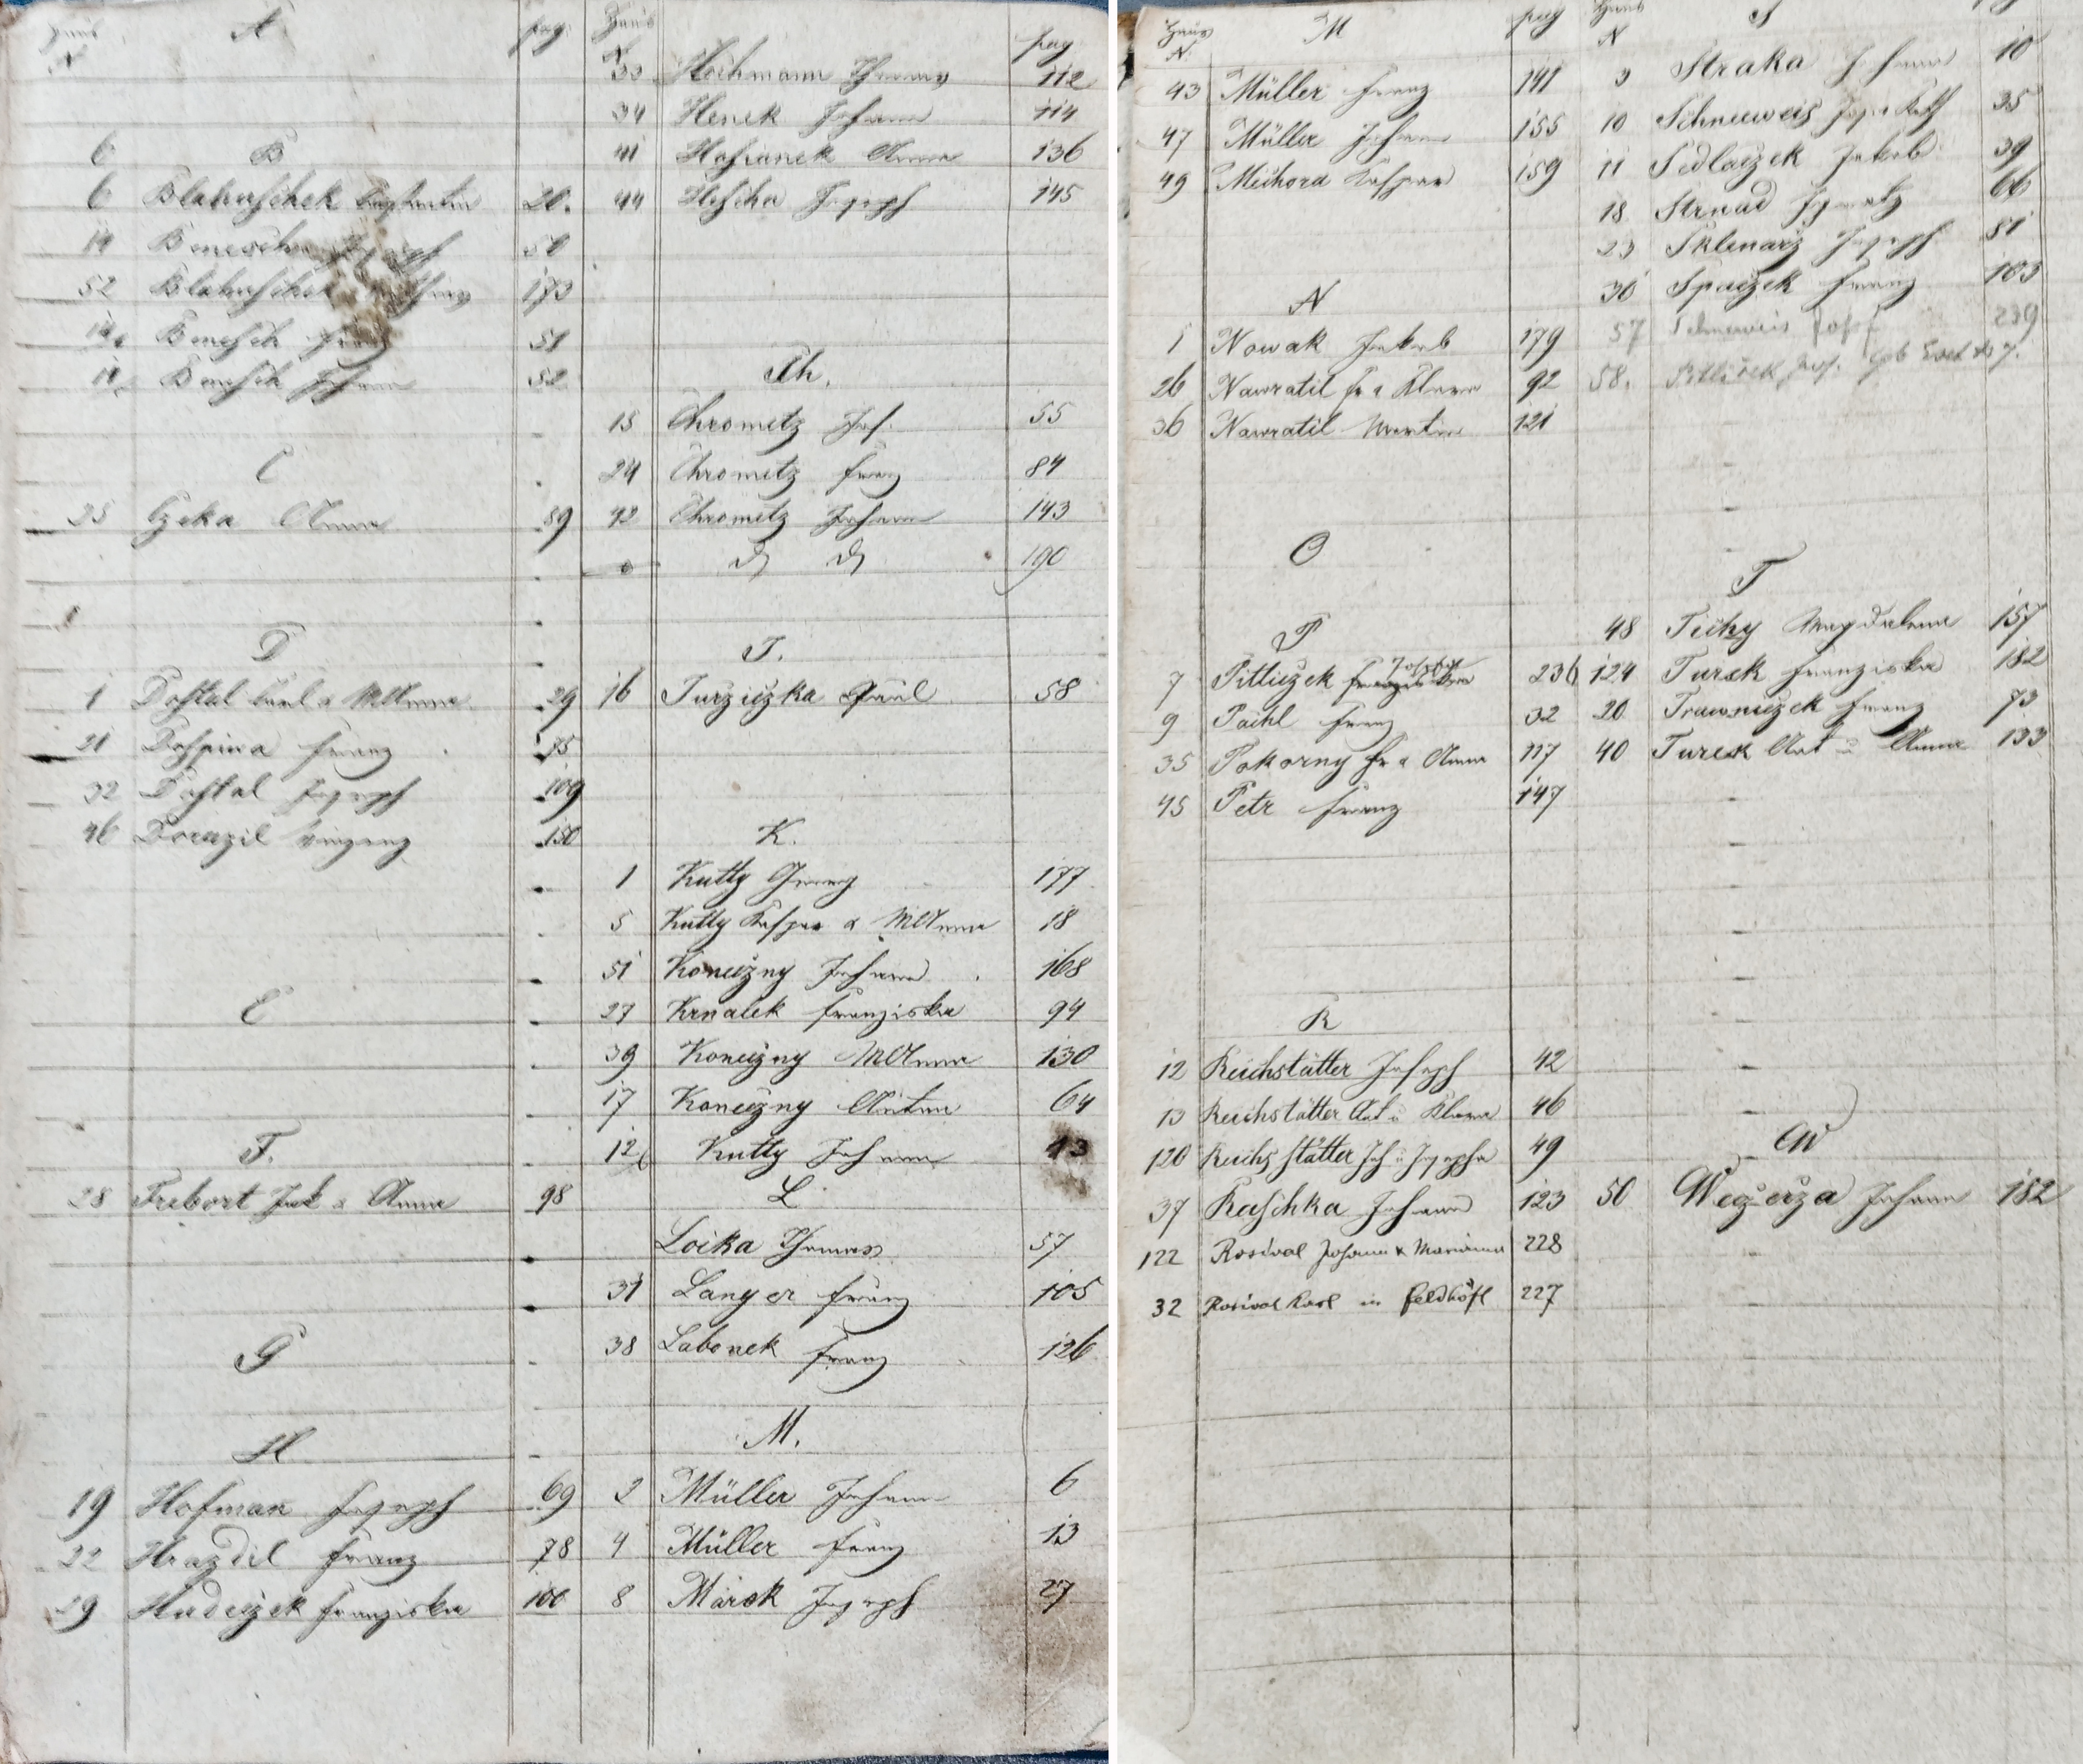 Haus N A pag
6 B
6 Blahuschek 20.
14 Benesch Joseph 50
52 Blahuschek 173
14 Benesch Franz 51
14 Benesch Johann 52
C
25 Czeka Anna 89
D
1 Dostal Karl & MAnna 29
21 Dospiva Franz 75
32 Dostal Joseph 109
46 Dorazil Vinzenz 150
E
F.
28 Trebort Jak & Anna 98
G
H
19 Hofman Joseph 69
22 Hrazdil Franz 78
29 Hudeczek Franziska 100
Haus N pag
33 Hochmann Thomas 112
34 Henek Johann 114
41 Hofianek Anna 136
44 Hescha Joseph 145
Ch.
15 Chrometz Jos. 55
24 Chrometz Franz 84
42 Chrometz Johann 143
190
J.
16 Jurziczka Paul 58
K.
1 Kutty Franz 177
5 Kutty Kaspar & MAnna 18
51 Koneczny Johann 168
27 Krnalek Franziska 94
39 Koneczny MAnna 130
17 Koneczny Anton 64
12 Kutty Johann 13
L
Loika Thomas 57
31 Langer Franz 105
38 Labonek Franz 126
M.
2 Müller Johann 6
4 Müller Franz 13
8 Marek Joseph 27
Haus N. M pag
43 Müller Franz 141
47 Müller Johann 155
49 Meihora Kaspar 159
N
1 Nowak Jakob 179
26 Nawratil Fr & Klara 92
36 Nawratil Martin 121
O
P
Josefa
7 Pitliczek Franziska 236
9 Paihl Franz 32
35 Pokorny Fr & Anna 117
45 Petr Franz 147
R
12 Reichstätter Joseph 42
13 Reichstätter Ant u Klara 46
120 Reichstätter Joh u Josepha 49
37 Raschka Johann 123
122 Rosival Johann & Marianna 228
32 Rosival Karl in Feldhöfl 227
Haus N S
3 Straka Johann 10
10 Schneeweis 35
11 Sedlaczek Jakob 39
18 Strnad Ignatz 66
23 Sklenarz Joseph 81
30 Spaczek Franz 103
57 Schneeweis Josef 239
58. Pitliček Jos.
T
48 Tichy Magdalena 157
124 Turek Franziska 182
20 Trawniczek Franz 73
40 Turek Ant u Anna 133
W
50 Weczerza Johann 182